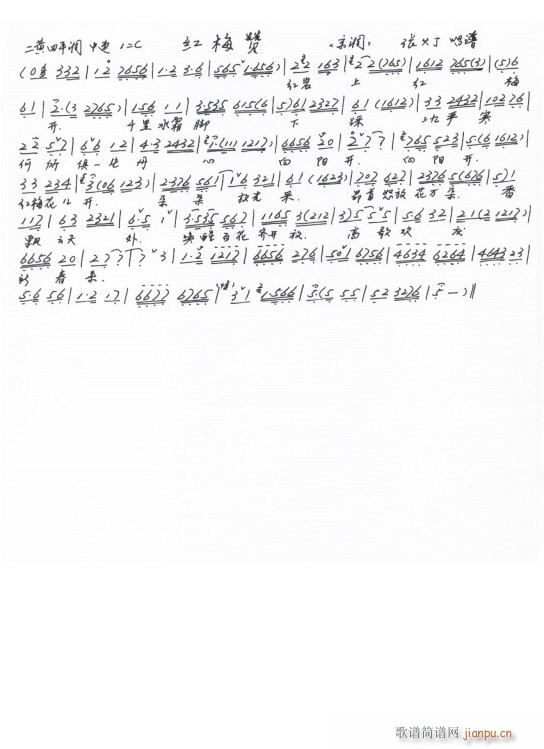 二黄四平调 中速 1=C 红梅赞 (京调) 张X丁 唱谱
(0 332 | 1·2 7656 | 1·2 3·6 | 565 1656) | 2 2 163 | 2 2 (765) | 1612 765(3) | (5)6
红岩 上 红 梅
61 | 2·(3 2765) | 156 11 | 3·535 615(6 | 5)61 2327 | 61 (1612) | 33 2432 | 102 76 |
开, 千里冰霜 脚 下 踩 三九严寒
22 5 7 | 6 6 12 | 4·3 2432 | 1·(111 1217) | 6656 20 | 2 7 7 | 765 523 | 5(6 1612) |
何所惧一片丹 心 向阳开. 向阳 开.
33 234 | 3(06 123) | 2376 561 | 1 6 321 | 61 (1623) | 707 627 | 2376 5(676 | 5)1
红梅花儿开. 朵朵 放光彩. 昂首怒放花万朵 香
117 | 63 2321 | 6·5 1 | 3·535 567 | 1165 3(212 | 3)5 5 5 | 56 32 | 21(2 1217) |
飘云天 外. 唤醒百花 齐开放. 高歌欢 庆
6656 20 | 2 7 7 | 7 6 3 | 1·2 1217 | 6656 276 | 501 6756 | 4634 6264 | 4643 23 |
新 春来.
5·6 56 | 1·2 17 | 6677 6765 | 3 1 | 1·566 | 5·(5 55 | 52 3276 | 5 —) ‖
歌谱简谱网
jianpu.cn